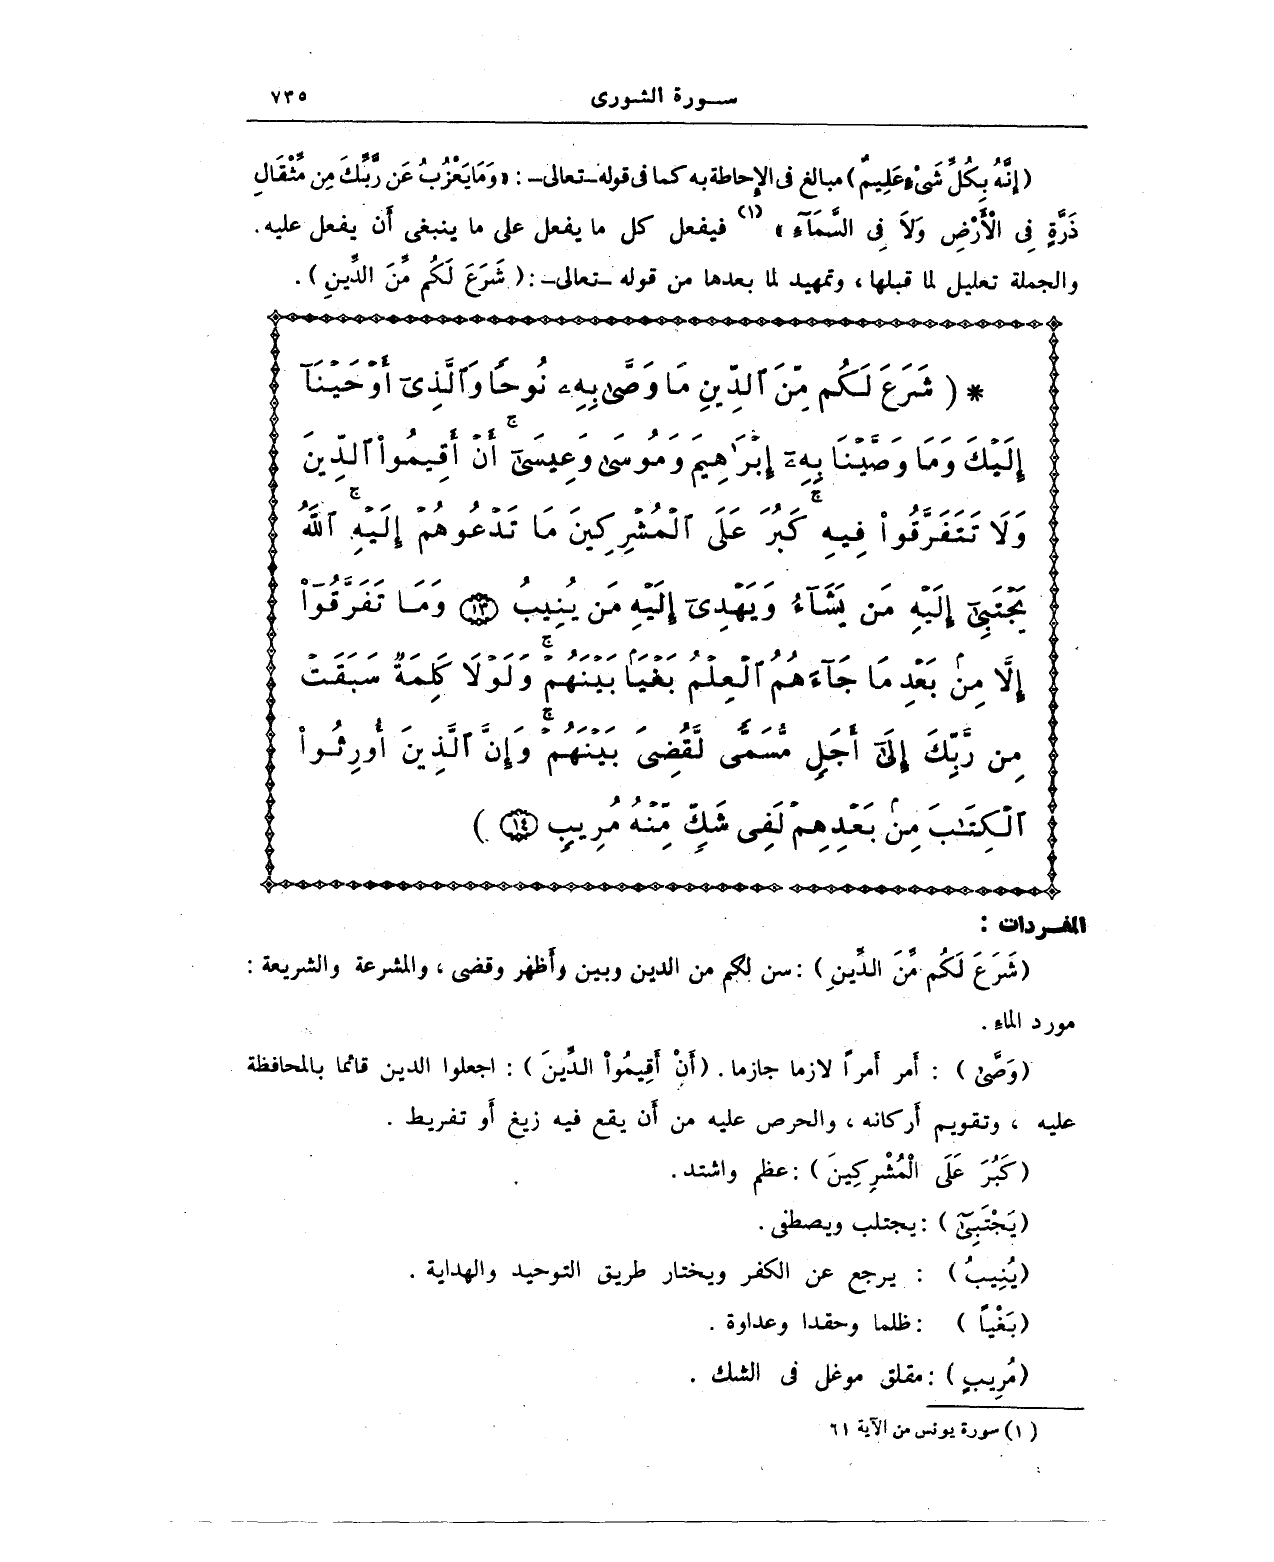 سورة الشورى ٧٣٥
(إِنَّهُ بِكُلِّ شَىْءٍ عَلِيمٌ) مبالغ فى الإحاطة به كما فى قوله -تعالى- : «وَمَا يَعْزُبُ عَن رَّبِّكَ مِن مِّثْقَالِ
ذَرَّةٍ فِى الْأَرْضِ وَلَا فِى السَّمَآءِ» (١) فيفعل كل ما يفعل على ما ينبغى أن يفعل عليه.
والجملة تعليل لما قبلها، وتمهيد لما بعدها من قوله -تعالى- : (شَرَعَ لَكُم مِّنَ الدِّينِ).
* ( شَرَعَ لَكُم مِّنَ ٱلدِّينِ مَا وَصَّىٰ بِهِۦ نُوحًا وَٱلَّذِىٓ أَوْحَيْنَآ
إِلَيْكَ وَمَا وَصَّيْنَا بِهِۦٓ إِبْرَٰهِيمَ وَمُوسَىٰ وَعِيسَىٰٓ ۚ أَنْ أَقِيمُوا۟ ٱلدِّينَ
وَلَا تَتَفَرَّقُوا۟ فِيهِ ۚ كَبُرَ عَلَى ٱلْمُشْرِكِينَ مَا تَدْعُوهُمْ إِلَيْهِ ۚ ٱللَّهُ
يَجْتَبِىٓ إِلَيْهِ مَن يَشَآءُ وَيَهْدِىٓ إِلَيْهِ مَن يُنِيبُ ١٣ وَمَا تَفَرَّقُوٓا۟
إِلَّا مِنۢ بَعْدِ مَا جَآءَهُمُ ٱلْعِلْمُ بَغْيًۢا بَيْنَهُمْ ۚ وَلَوْلَا كَلِمَةٌ سَبَقَتْ
مِن رَّبِّكَ إِلَىٰٓ أَجَلٍ مُّسَمًّى لَّقُضِىَ بَيْنَهُمْ ۚ وَإِنَّ ٱلَّذِينَ أُورِثُوا۟
ٱلْكِتَٰبَ مِنۢ بَعْدِهِمْ لَفِى شَكٍّ مِّنْهُ مُرِيبٍ ١٤ )
المفـردات :
(شَرَعَ لَكُم مِّنَ الدِّينِ) : سن لكم من الدين وبين وأظهر وقضى ، والمشرعة والشريعة :
مورد الماء .
(وَصَّىٰ) : أمر أمراً لازما جازما . (أَنْ أَقِيمُواْ الدِّينَ) : اجعلوا الدين قائما بالمحافظة
عليه ، وتقويم أركانه ، والحرص عليه من أن يقع فيه زيغ أو تفريط .
(كَبُرَ عَلَى الْمُشْرِكِينَ) : عظم واشتد .
(يَجْتَبِىٓ) : يجتلب ويصطفى .
(يُنِيبُ) : يرجع عن الكفر ويختار طريق التوحيد والهداية .
(بَغْياً) : ظلما وحقدا وعداوة .
(مُرِيبٍ) : مقلق موغل فى الشك .
(١) سورة يونس من الآية ٦١